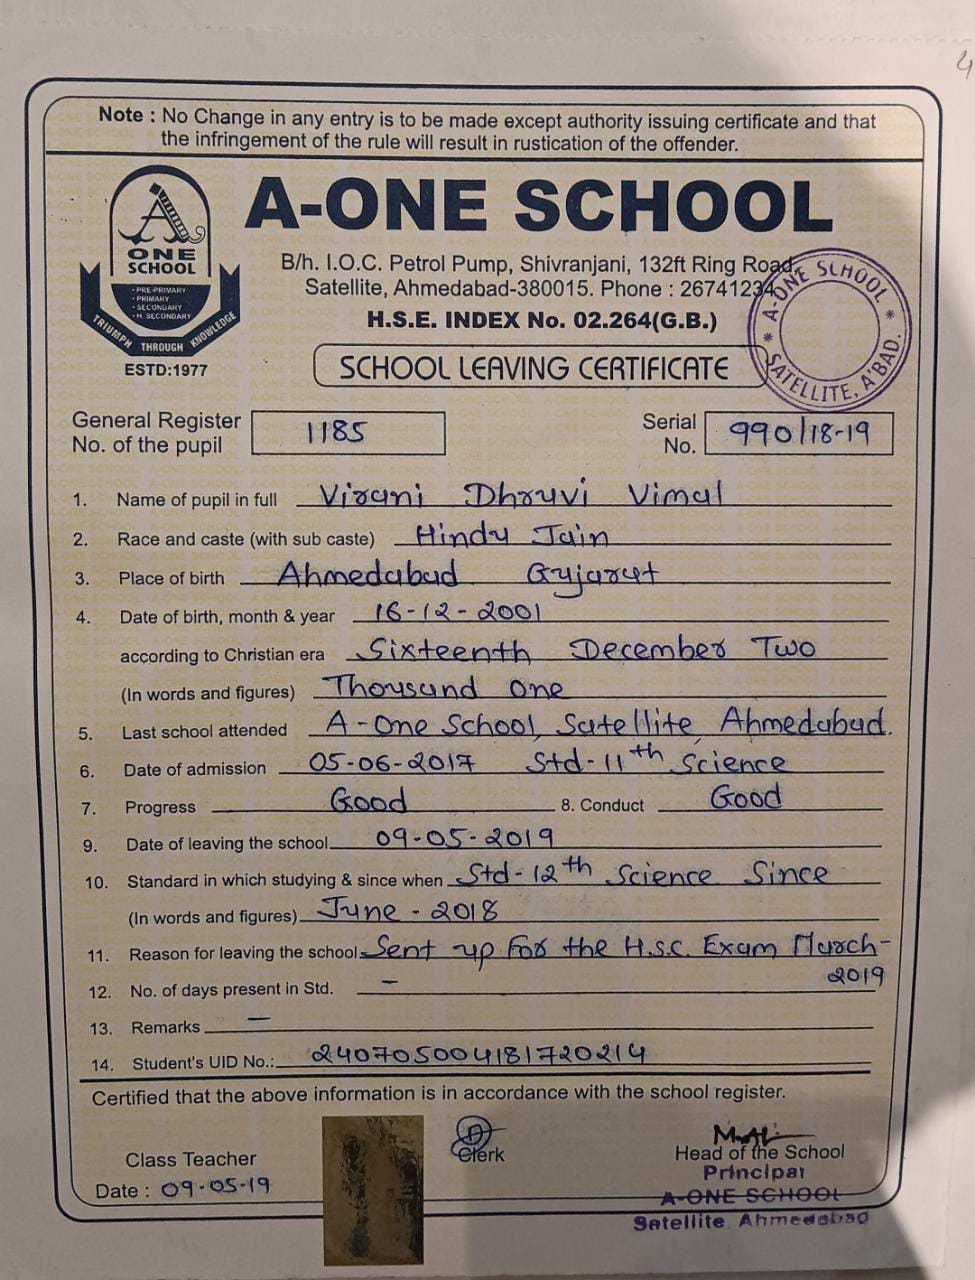 4
Note : No Change in any entry is to be made except authority issuing certificate and that
the infringement of the rule will result in rustication of the offender.
A
ONE
SCHOOL
• PRE-PRIMARY
• PRIMARY
• SECONDARY
• H. SECONDARY
TRIUMPH THROUGH KNOWLEDGE
ESTD:1977
A-ONE SCHOOL
B/h. I.O.C. Petrol Pump, Shivranjani, 132ft Ring Road,
Satellite, Ahmedabad-380015. Phone : 26741234
H.S.E. INDEX No. 02.264(G.B.)
SCHOOL LEAVING CERTIFICATE
* A-ONE SCHOOL * SATELLITE, A'BAD.
General Register
No. of the pupil 1185
Serial
No. 990/18-19
1. Name of pupil in full Virani Dhruvi Vimal
2. Race and caste (with sub caste) Hindu Jain
3. Place of birth Ahmedabad Gujarat
4. Date of birth, month & year 16-12-2001
according to Christian era Sixteenth December Two
(In words and figures) Thousand One
5. Last school attended A-One School, Satellite, Ahmedabad.
6. Date of admission 05-06-2017 Std-11th Science
7. Progress Good 8. Conduct Good
9. Date of leaving the school 09-05-2019
10. Standard in which studying & since when Std-12th Science Since
(In words and figures) June - 2018
11. Reason for leaving the school Sent up For the H.S.C. Exam March-
2019
12. No. of days present in Std. –
13. Remarks –
14. Student's UID No.: 240705004181720214
Certified that the above information is in accordance with the school register.
Class Teacher
Clerk
Head of the School
Principal
A-ONE SCHOOL
Satellite, Ahmedabad
Date : 09-05-19